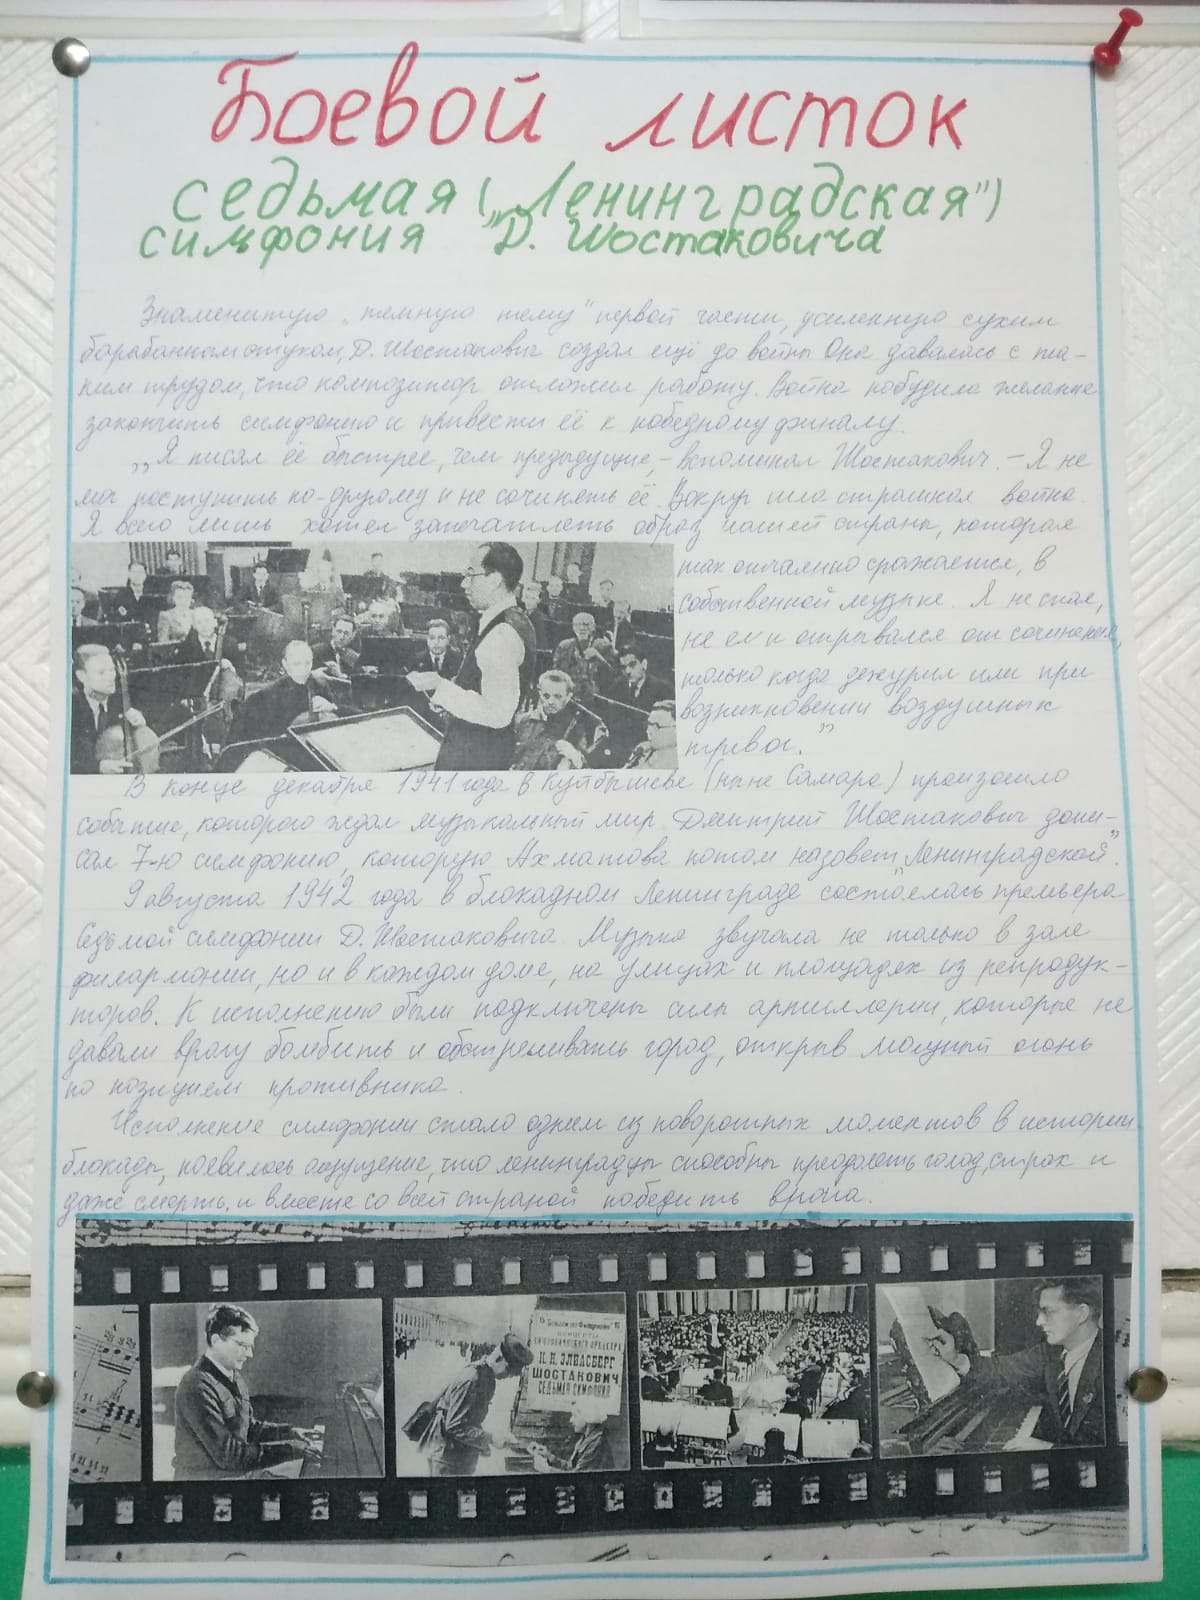 Боевой листок
седьмая („Ленинградская”)
симфония Д. Шостаковича
Знаменитую „темную тему” первой части, усиленную сухим
барабанным стуком, Д. Шостакович создал ещё до войны Она давалась с та-
ким трудом, что композитор отложил работу. Война побудила желание
закончить симфонию и привести её к победному финалу.
„Я писал её быстрее, чем предыдущие, – вспоминал Шостакович. – Я не
мог поступить по-другому и не сочинять её. Вокруг шла страшная война.
Я всего лишь хотел запечатлеть образ нашей страны, которая
так отчаянно сражается, в
собственной музыке. Я не спал,
не ел и отрывался от сочинения,
только когда дежурил или при
возникновении воздушных
тревог.”
В конце декабря 1941 года в Куйбышеве (ныне Самара) произошло
событие, которого ждал музыкальный мир. Дмитрий Шостакович допи-
сал 7-ю симфонию, которую Ахматова потом назовет „Ленинградской”.
9 августа 1942 года в блокадном Ленинграде состоялась премьера
Седьмой симфонии Д. Шостаковича. Музыка звучала не только в зале
филармонии, но и в каждом доме, на улицах и площадях из репродук-
торов. К исполнению были подключены силы артиллерии, которые не
давали врагу бомбить и обстреливать город, открыв мощный огонь
по позициям противника.
Исполнение симфонии стало одним из поворотных моментов в истории
блокады, появилось ощущение, что ленинградцы способны преодолеть голод, страх и
даже смерть, и вместе со всей страной победить врага.
КОНЦЕРТЫ
К. И. ЭЛИАСБЕРГ
ШОСТАКОВИЧ
СЕДЬМАЯ СИМФОНИЯ